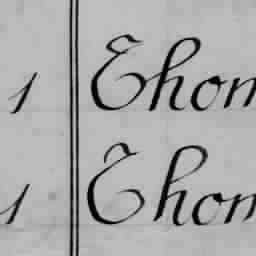 1 Thom
1 Thom